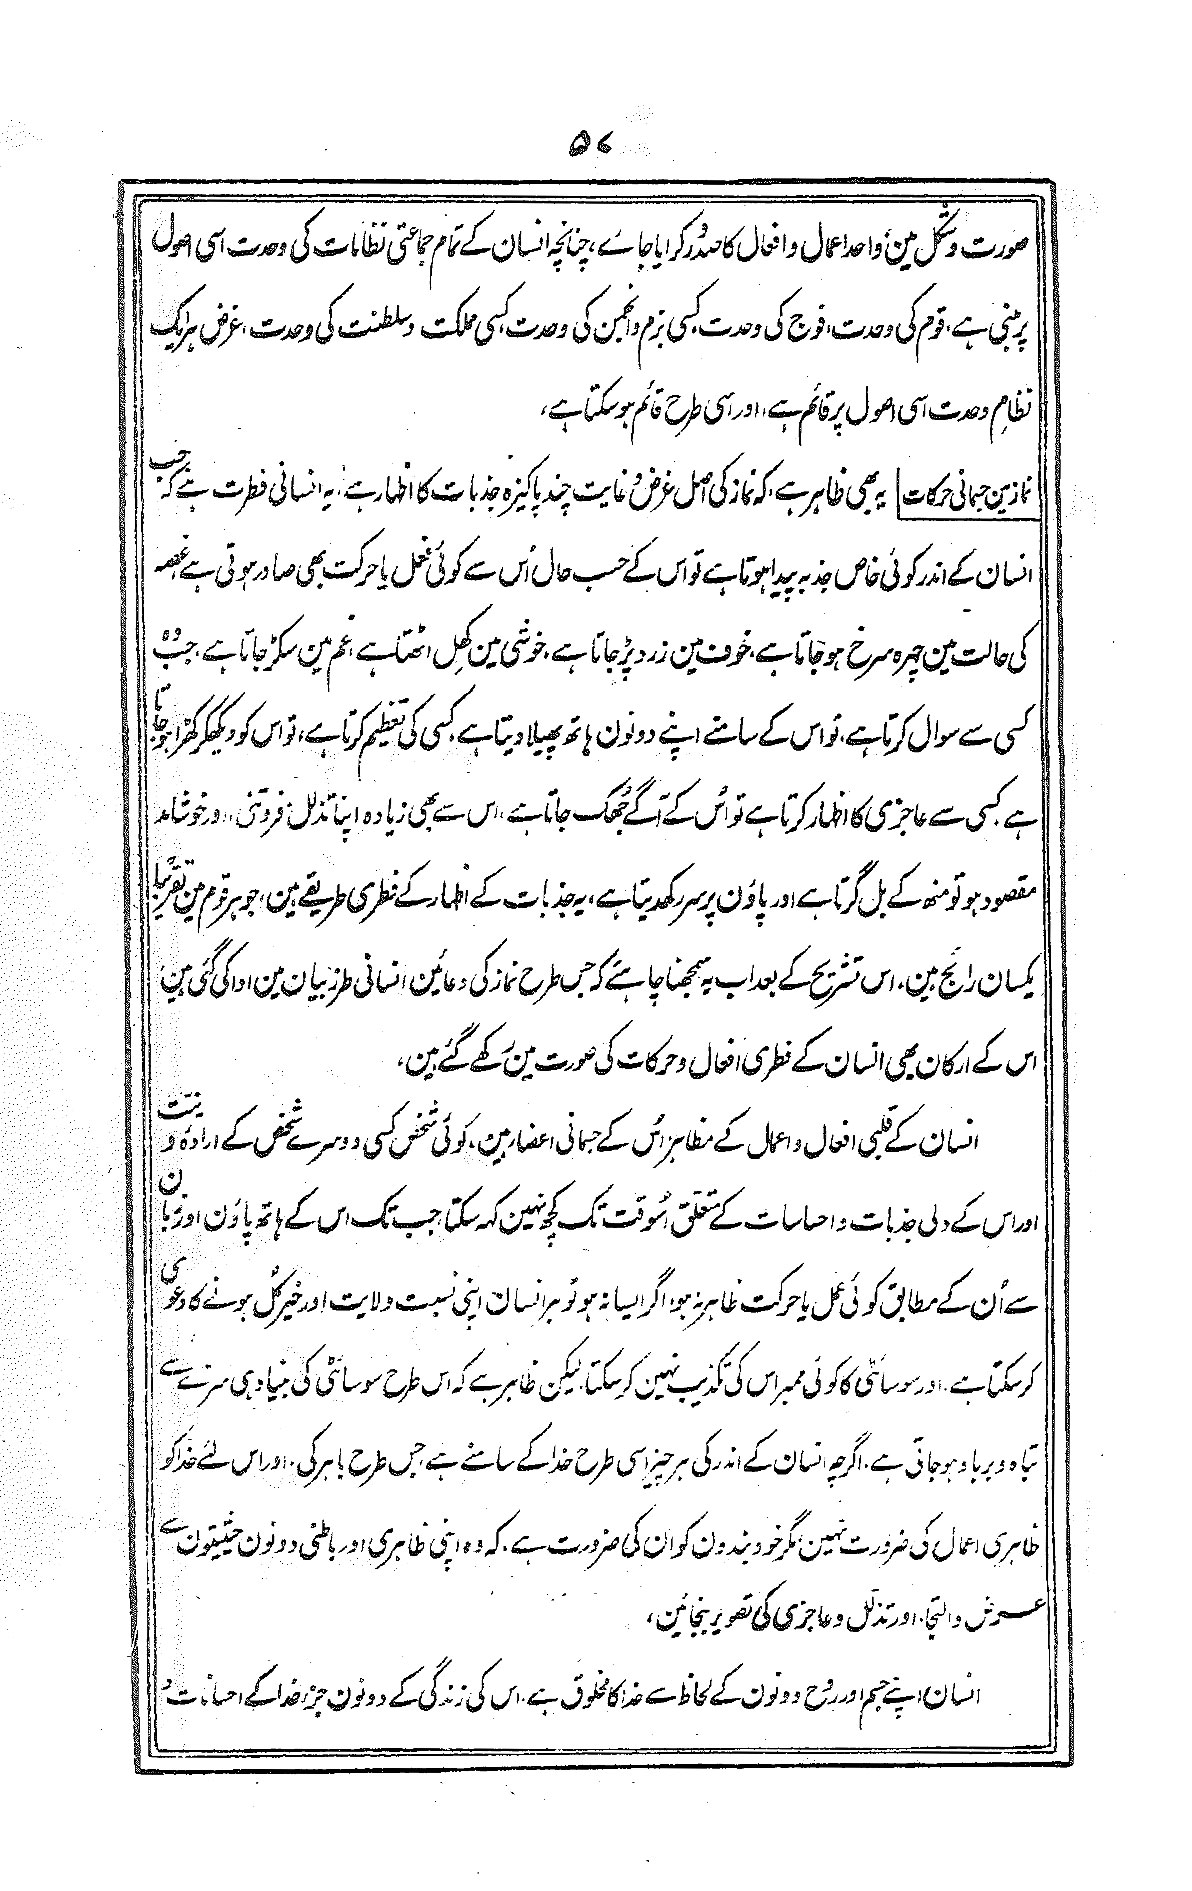 ۵۷
صورت و شکل مین واحد اعمال و افعال کا صدور کرایا جائے، چنانچہ انسان کے تمام جماعتی نظامات کی وحدت اسی اصول
پر مبنی ہے، قوم کی وحدت، فوج کی وحدت، کسی بزم و انجمن کی وحدت، کسی مملکت و سلطنت کی وحدت، غرض ہر ایک
نظامِ وحدت اسی اصول پر قائم ہے، اور اسی طرح قائم ہو سکتا ہے،
نماز مین جسمانی حرکات یہ بھی ظاہر ہے، کہ نماز کی اصل غرض و غایت چند پاکیزہ جذبات کا اظہار ہے، یہ انسانی فطرت ہے کہ جب
انسان کے اندر کوئی خاص جذبہ پیدا ہوتا ہے تو اس کے حسب حال اُس سے کوئی فعل یا حرکت بھی صادر ہوتی ہے، غصہ
کی حالت مین چہرہ سرخ ہو جاتا ہے، خوف مین زرد پڑ جاتا ہے، خوشی مین کھِل اٹھتا ہے، غم مین سکڑ جاتا ہے، جب وہ
کسی سے سوال کرتا ہے، تو اس کے سامنے اپنے دونون ہاتھ پھیلا دیتا ہے، کسی کی تعظیم کرتا ہے، تو اس کو دیکھکر کھڑا ہو جاتا
ہے، کسی سے عاجزی کا اظہار کرتا ہے تو اُس کے آگے جُھک جاتا ہے، اس سے بھی زیادہ اپنا تذلل، فروتنی، اور خوشامد
مقصود ہو تو منھ کے بل گرتا ہے اور پاؤن پر سر رکھدیتا ہے، یہ جذبات کے اظہار کے فطری طریقے ہین، جو ہر قوم مین تقریباً
یکسان رائج ہین، اس تشریح کے بعد اب یہ سمجھنا چاہئے کہ جس طرح نماز کی دعائین انسانی طرز بیان مین ادا کی گئی ہین،
اس کے ارکان بھی انسان کے فطری افعال و حرکات کی صورت مین رکھے گئے ہین،
انسان کے قلبی افعال و اعمال کے مظاہر اُس کے جسمانی اعضا ہین، کوئی شخص کسی دوسرے شخص کے ارادہ و نیت
اور اس کے دلی جذبات و احساسات کے متعلق اُسوقت تک کچھ نہین کہہ سکتا، جب تک اس کے ہاتھ پاؤن اور زبان
سے اُن کے مطابق کوئی عمل یا حرکت ظاہر نہ ہو، اگر ایسا نہ ہو تو ہر انسان اپنی نسبت ولایت اور خیر کُل ہونے کا دعویٰ
کر سکتا ہے، اور سوسائٹی کا کوئی ممبر اس کی تکذیب نہین کر سکتا، لیکن ظاہر ہے کہ اس طرح سوسائٹی کی بنیاد ہی سرے سے
تباہ و برباد ہو جاتی ہے، اگرچہ انسان کے اندر کی ہر چیز اسی طرح خدا کے سامنے ہے، جس طرح باہر کی، اور اس لئے خدا کو
ظاہری اعمال کی ضرورت نہین، مگر خود بندون کو ان کی ضرورت ہے، کہ وہ اپنی ظاہری اور باطنی دونون حیثیتون سے
عرض والتجا، اور تذلل و عاجزی کی تصویر بنجائین،
انسان اپنے جسم اور روح دونون کے لحاظ سے خدا کا مخلوق ہے، اس کی زندگی کے دونون جز، خدا کے احسانات و